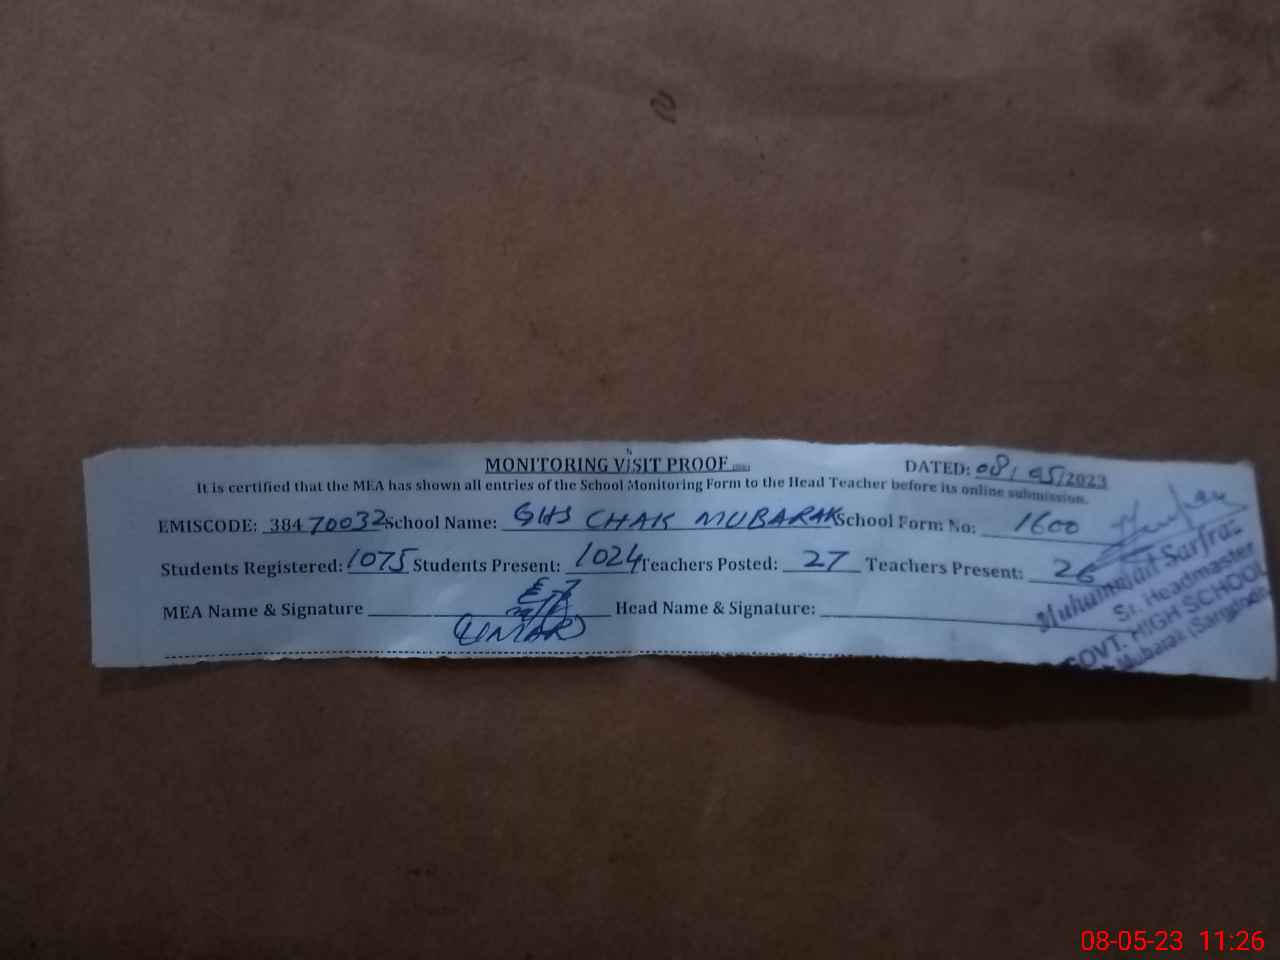 MONITORING VISIT PROOF
DATED: 08/05/2023
It is certified that the MEA has shown all entries of the School Monitoring Form to the Head Teacher before its online submission.
EMISCODE: 38470032 School Name: GHS CHAK MUBARAK School Form No: 1600
Students Registered: 1075 Students Present: 1024 Teachers Posted: 27 Teachers Present: 26
MEA Name & Signature UMAR Head Name & Signature:
Muhammad Sarfraz
Sr. Headmaster
GOVT. HIGH SCHOOL
Mubarak (Sargodha)
08-05-23 11:26